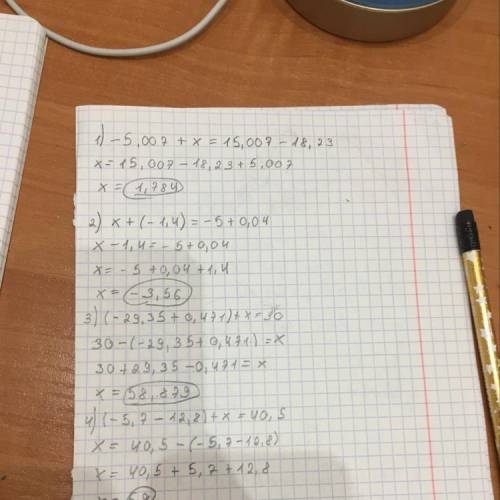 1) -5,007 + x = 15,007 - 18,23
x = 15,007 - 18,23 + 5,007
x = 1,784
2) x + (-1,4) = -5 + 0,04
x - 1,4 = -5 + 0,04
x = -5 + 0,04 + 1,4
x = -3,56
3) (-29,35 + 0,471) + x = 30
30 - (-29,35 + 0,471) = x
30 + 29,35 - 0,471 = x
x = 58,879
4) (-5,7 - 12,8) + x = 40,5
x = 40,5 - (-5,7 - 12,8)
x = 40,5 + 5,7 + 12,8